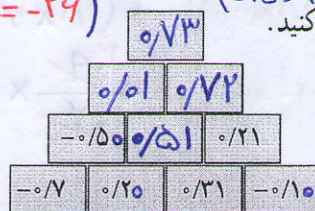 = -۲۹)
کنید.
۰٫۷۳
۰٫۰۱ ۰٫۷۲
-۰/۵۰ ۰٫۵۱ ۰/۲۱
-۰/۷ ۰/۲۰ ۰/۳۱ -۰/۱۰